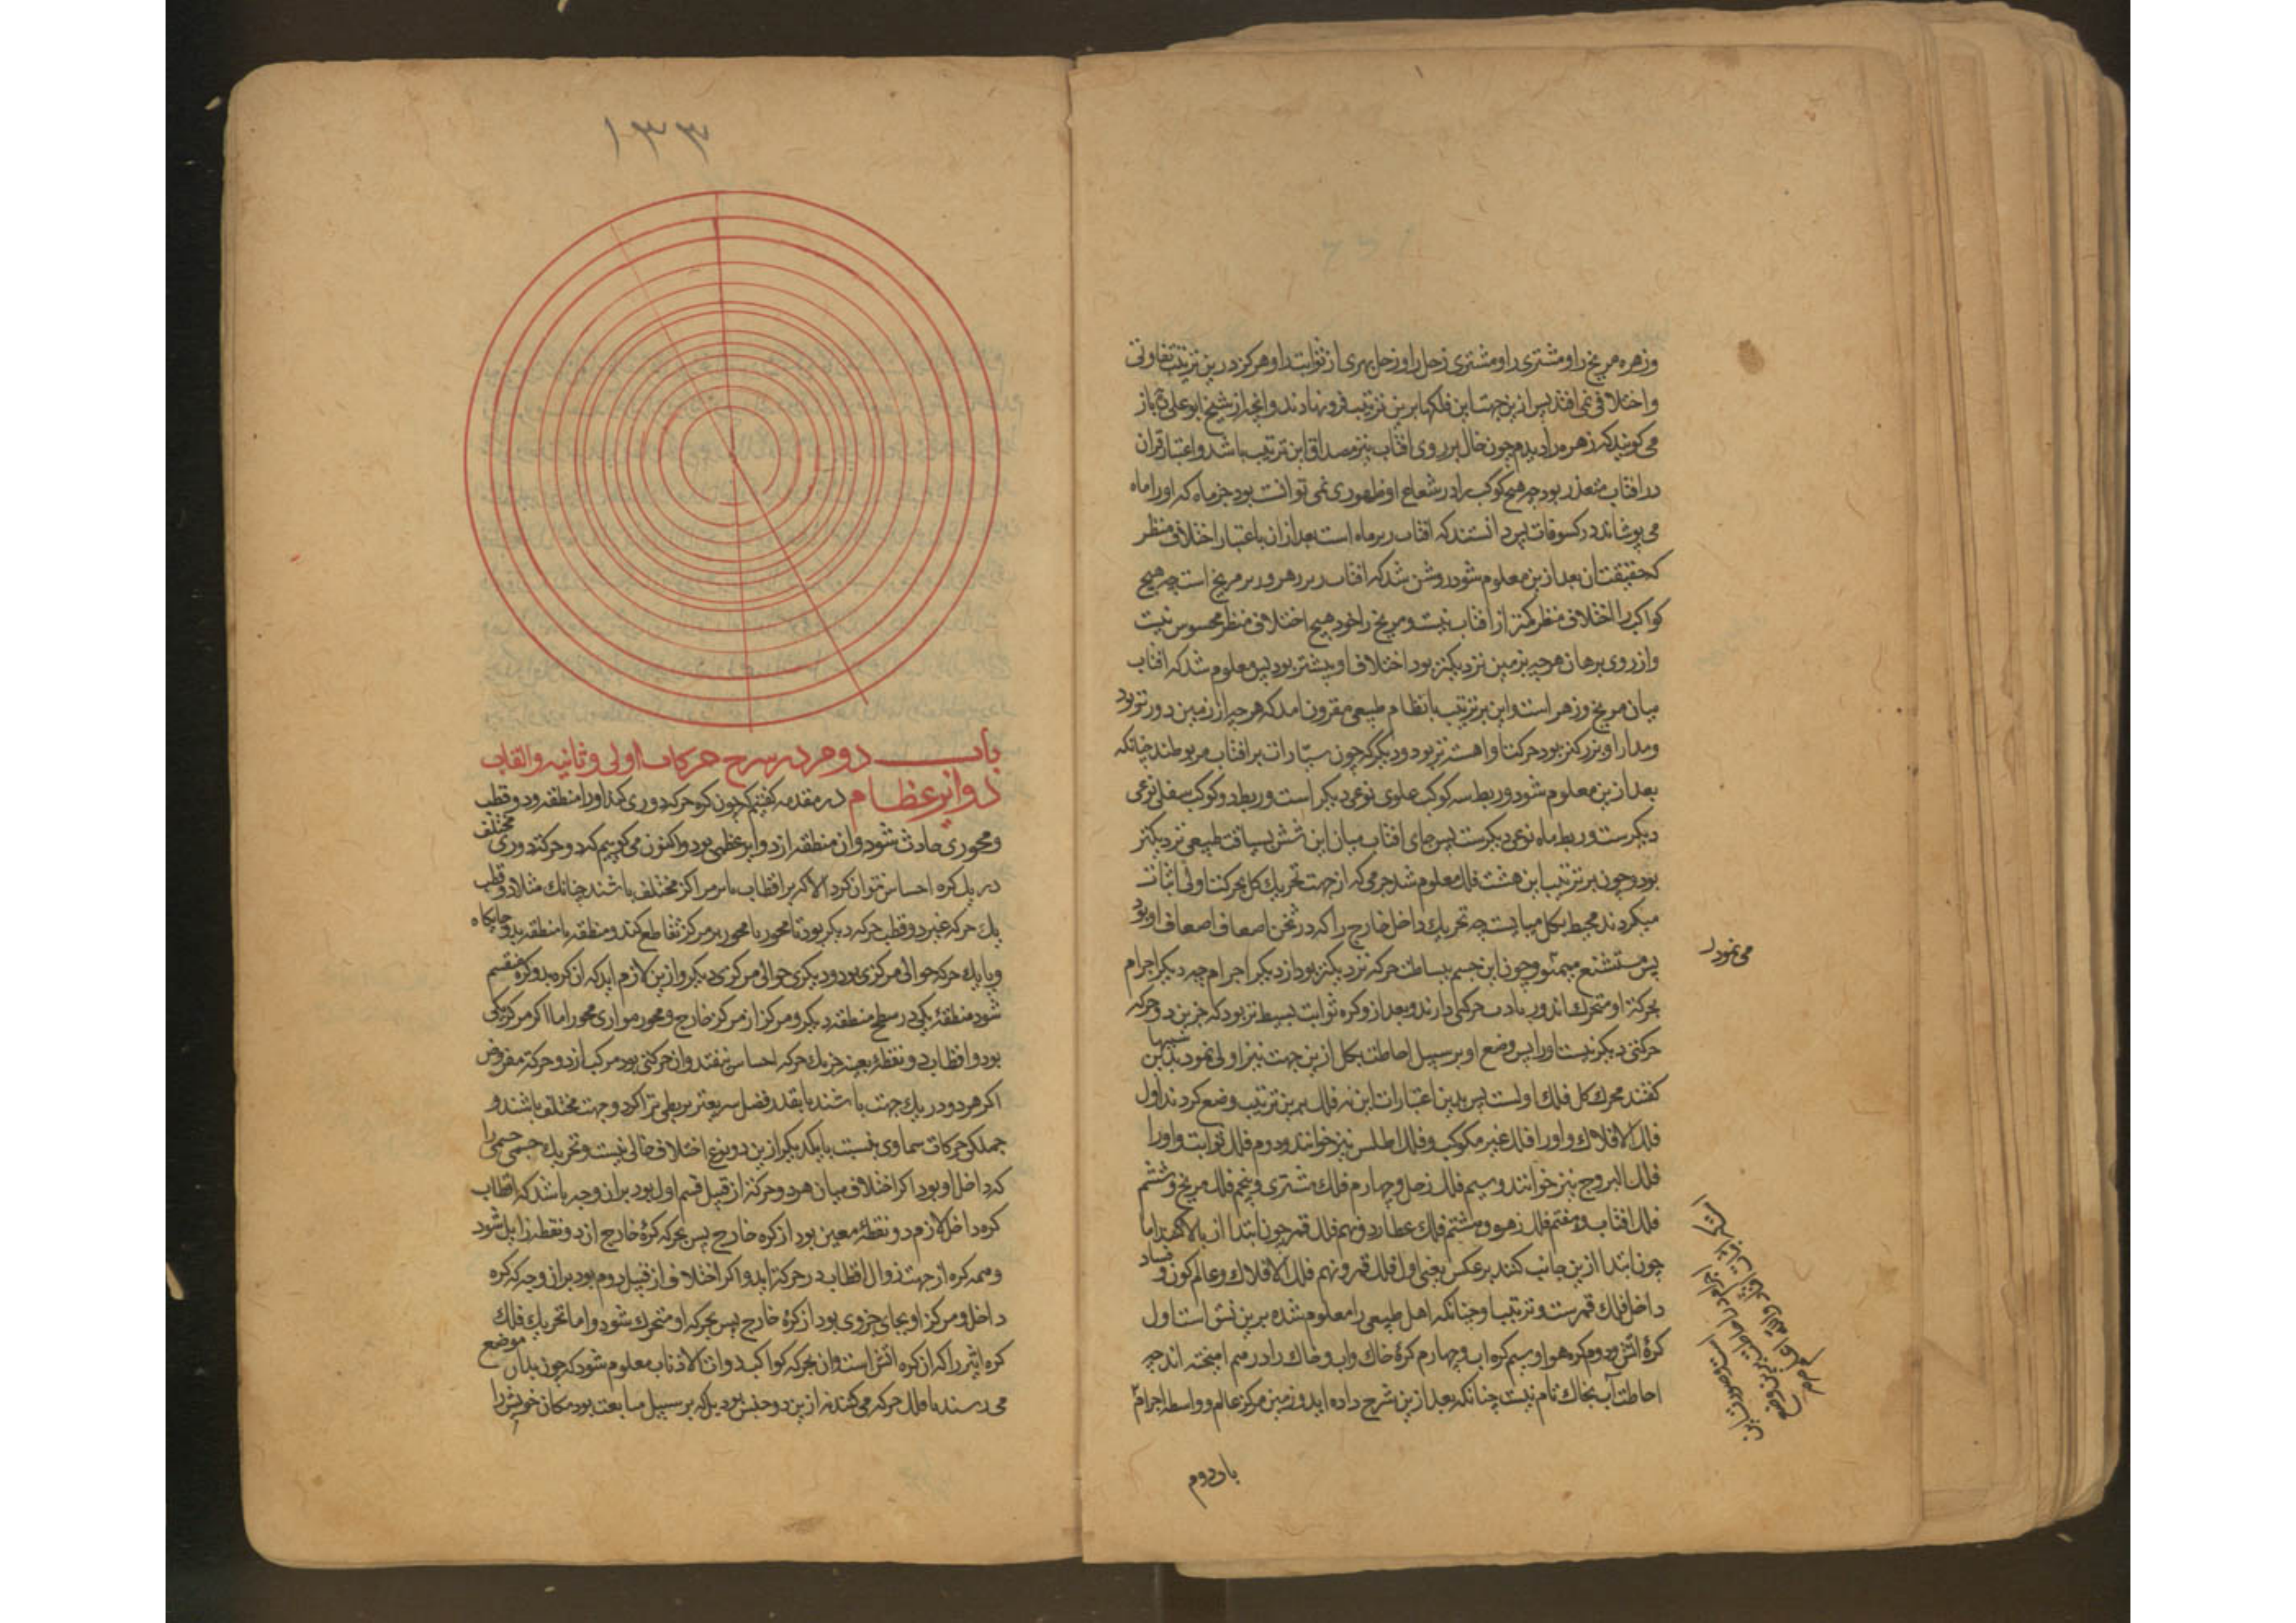 وزهره مریخ را و مشتری را و مشتری زحل را و زحل بهری از ثوابت را و هرگز درین ترتیب تفاوتی
و اختلافی نمی افتد پس ازین جهت این فلکها برین ترتیب فرو نهادند و آنچه از شیخ ابو علی باز
می گویند که زهره را دیدم چون خال بر روی افتاب نیز مصداق این ترتیب باشد و اعتبار قران
در افتاب متعذر بود چه هیچ کوکب را در شعاع او ظهوری نمی توانست بود جز ماه که او را ماه
می پوشاند در کسوفات پس دانستند که افتاب زبر ماه است بعد از ان باعتبار اختلاف منظر
که حقیقت آن بعد ازین معلوم شود روشن شد که افتاب زبر زهره و زیر مریخ است چه هیچ
کواکب را اختلاف منظر کمتر از افتاب نیست و مریخ را خود هیچ اختلاف منظر محسوس نیست
و از روی برهان هر چه بزمین نزدیکتر بود اختلاف او بیشتر بود پس معلوم شد که افتاب
میان مریخ و زهره است و این ترتیب با نظام طبیعی مقرون امد که هر چه از زمین دورتر بود
و مدار او بزرگتر بود حرکت او اهسته تر بود و دیگر که چون سیارات بر افتاب مربوطند چنانکه
بعد ازین معلوم شود و ربط سه کوکب علوی نوعی دیگر است و ربط دو کوکب سفلی نوعی
دیگرست و ربط ماه نوعی دیگرست پس جای افتاب میان این شش بسیاقت طبیعی نزدیکتر
بود و چون بر ترتیب این هشت فلک معلوم شد جرمی که از جهت تحریک کل بحرکت اولی اثبات
میکردند محیط بکل میبایست چه تحریک داخل خارج را که در ثخن اضعاف اضعاف او بود
پس مستشنع مینمود و چون این جسم ببساطت حرکه نزدیکتر بود از دیگر اجرام چه دیگر اجرام
می نمود
بحرکة او متحرک اند و زیادت حرکتی دارند و بعد از و کره ثوابت بسیط تر بود که جز این دو حرکه
حرکتی دیگر نیست او را پس وضع او بر سبیل احاطت بکل ازین جهت نیز اولی نمود بدین
شبهها
گفتند محرک کل فلک اولست پس بدین اعتبارات این نه فلک برین ترتیب وضع کردند اول
فلک الافلاک و او را فلک غیر مکوکب و فلک اطلس نیز خوانند و دوم فلک ثوابت و او را
فلک البروج نیز خوانند و سیم فلک زحل و چهارم فلک مشتری و پنجم فلک مریخ و ششم
فلک افتاب و هفتم فلک زهره و هشتم فلک عطارد و نهم فلک قمر چون ابتدا از بالا کنند اما
چون ابتدا ازین جانب کنند بر عکس یعنی اول فلک قمر و نهم فلک الافلاک و عالم کون و فساد
داخل فلک قمرست و ترتیب او چنانکه اهل طبیعی را معلوم شده برین نسق است اول
کرۀ اتش و دوم کره هوا و سیم کره اب و چهارم کرۀ خاک و اب و خاک را در هم امیخته اند چه
احاطت آب بخاک تام نیست چنانکه بعد ازین شرح داده اید و زمین مرکز عالم و واسطه اجرام
است و صورت این
اجرام در احاطت برین وضع
باب دوم
۱۳۳
باب دوم در شرح حرکات اولی و ثانیه و القاب
دوایر عظام در مقدمه گفتیم که چون کره حرکه دوری کند او را منطقه و دو قطب
و محوری حادث شود و ان منطقه از دوایر عظمی بود و اکنون می گوییم که دو حرکت دوری مختلف
در یک کره احساس نتوان کرد الا که بر اقطاب یا بر مراکز مختلف باشند چنانک مثلا دو قطب
یک حرکه غیر دو قطب حرکه دیگر بود تا محور با محور بر مرکز تقاطع کند و منطقه با منطقه بدو جایگاه
و یا یک حرکه حوالی مرکزی بود و دیگری حوالی مرکزی دیگر و ازین لازم اید که ان کره بدو کره منقسم
شود منطقۀ یکی در سطح منطقه دیگر و مرکز از مرکز خارج و محور موازی محور اما اگر مرکز یکی
بود و اقطاب دو نقطه بعینه جز یک حرکه احساس نیفتد و ان حرکتی بود مرکب از دو حرکة مفروض
اگر هر دو در یک جهت باشند یا بقدر فضل سریعتر بر بطی تر اگر دو جهت مختلف باشند و
جملگی حرکات سماوی بنسبت با یکدیگر ازین دو نوع اختلاف خالی نیست و تحریک جسمی جسمی را
که داخل او بود اگر اختلاف میان هر دو حرکة از قبیل قسم اول بود بران وجه باشد که اقطاب
کره داخل لازم دو نقطۀ معین بود از کره خارج پس بحرکه کرۀ خارج ان دو نقطه زایل شود
و همه کره از جهت زوال اقطاب در حرکة اید و اگر اختلاف از قبیل دوم بود بران وجه که کره
داخل و مرکز او بجای جزوی بود از کرۀ خارج پس بحرکه او متحرک شود و اما تحریک فلک
کره اثیر را که ان کره اتش است و ان بحرکه کواکب ذوات الاذناب معلوم شود که چون بدان موضع
می رسند با فلک حرکه می کنند نه ازین دو جنس بود بل که بر سبیل متابعت بود مکان خویش را